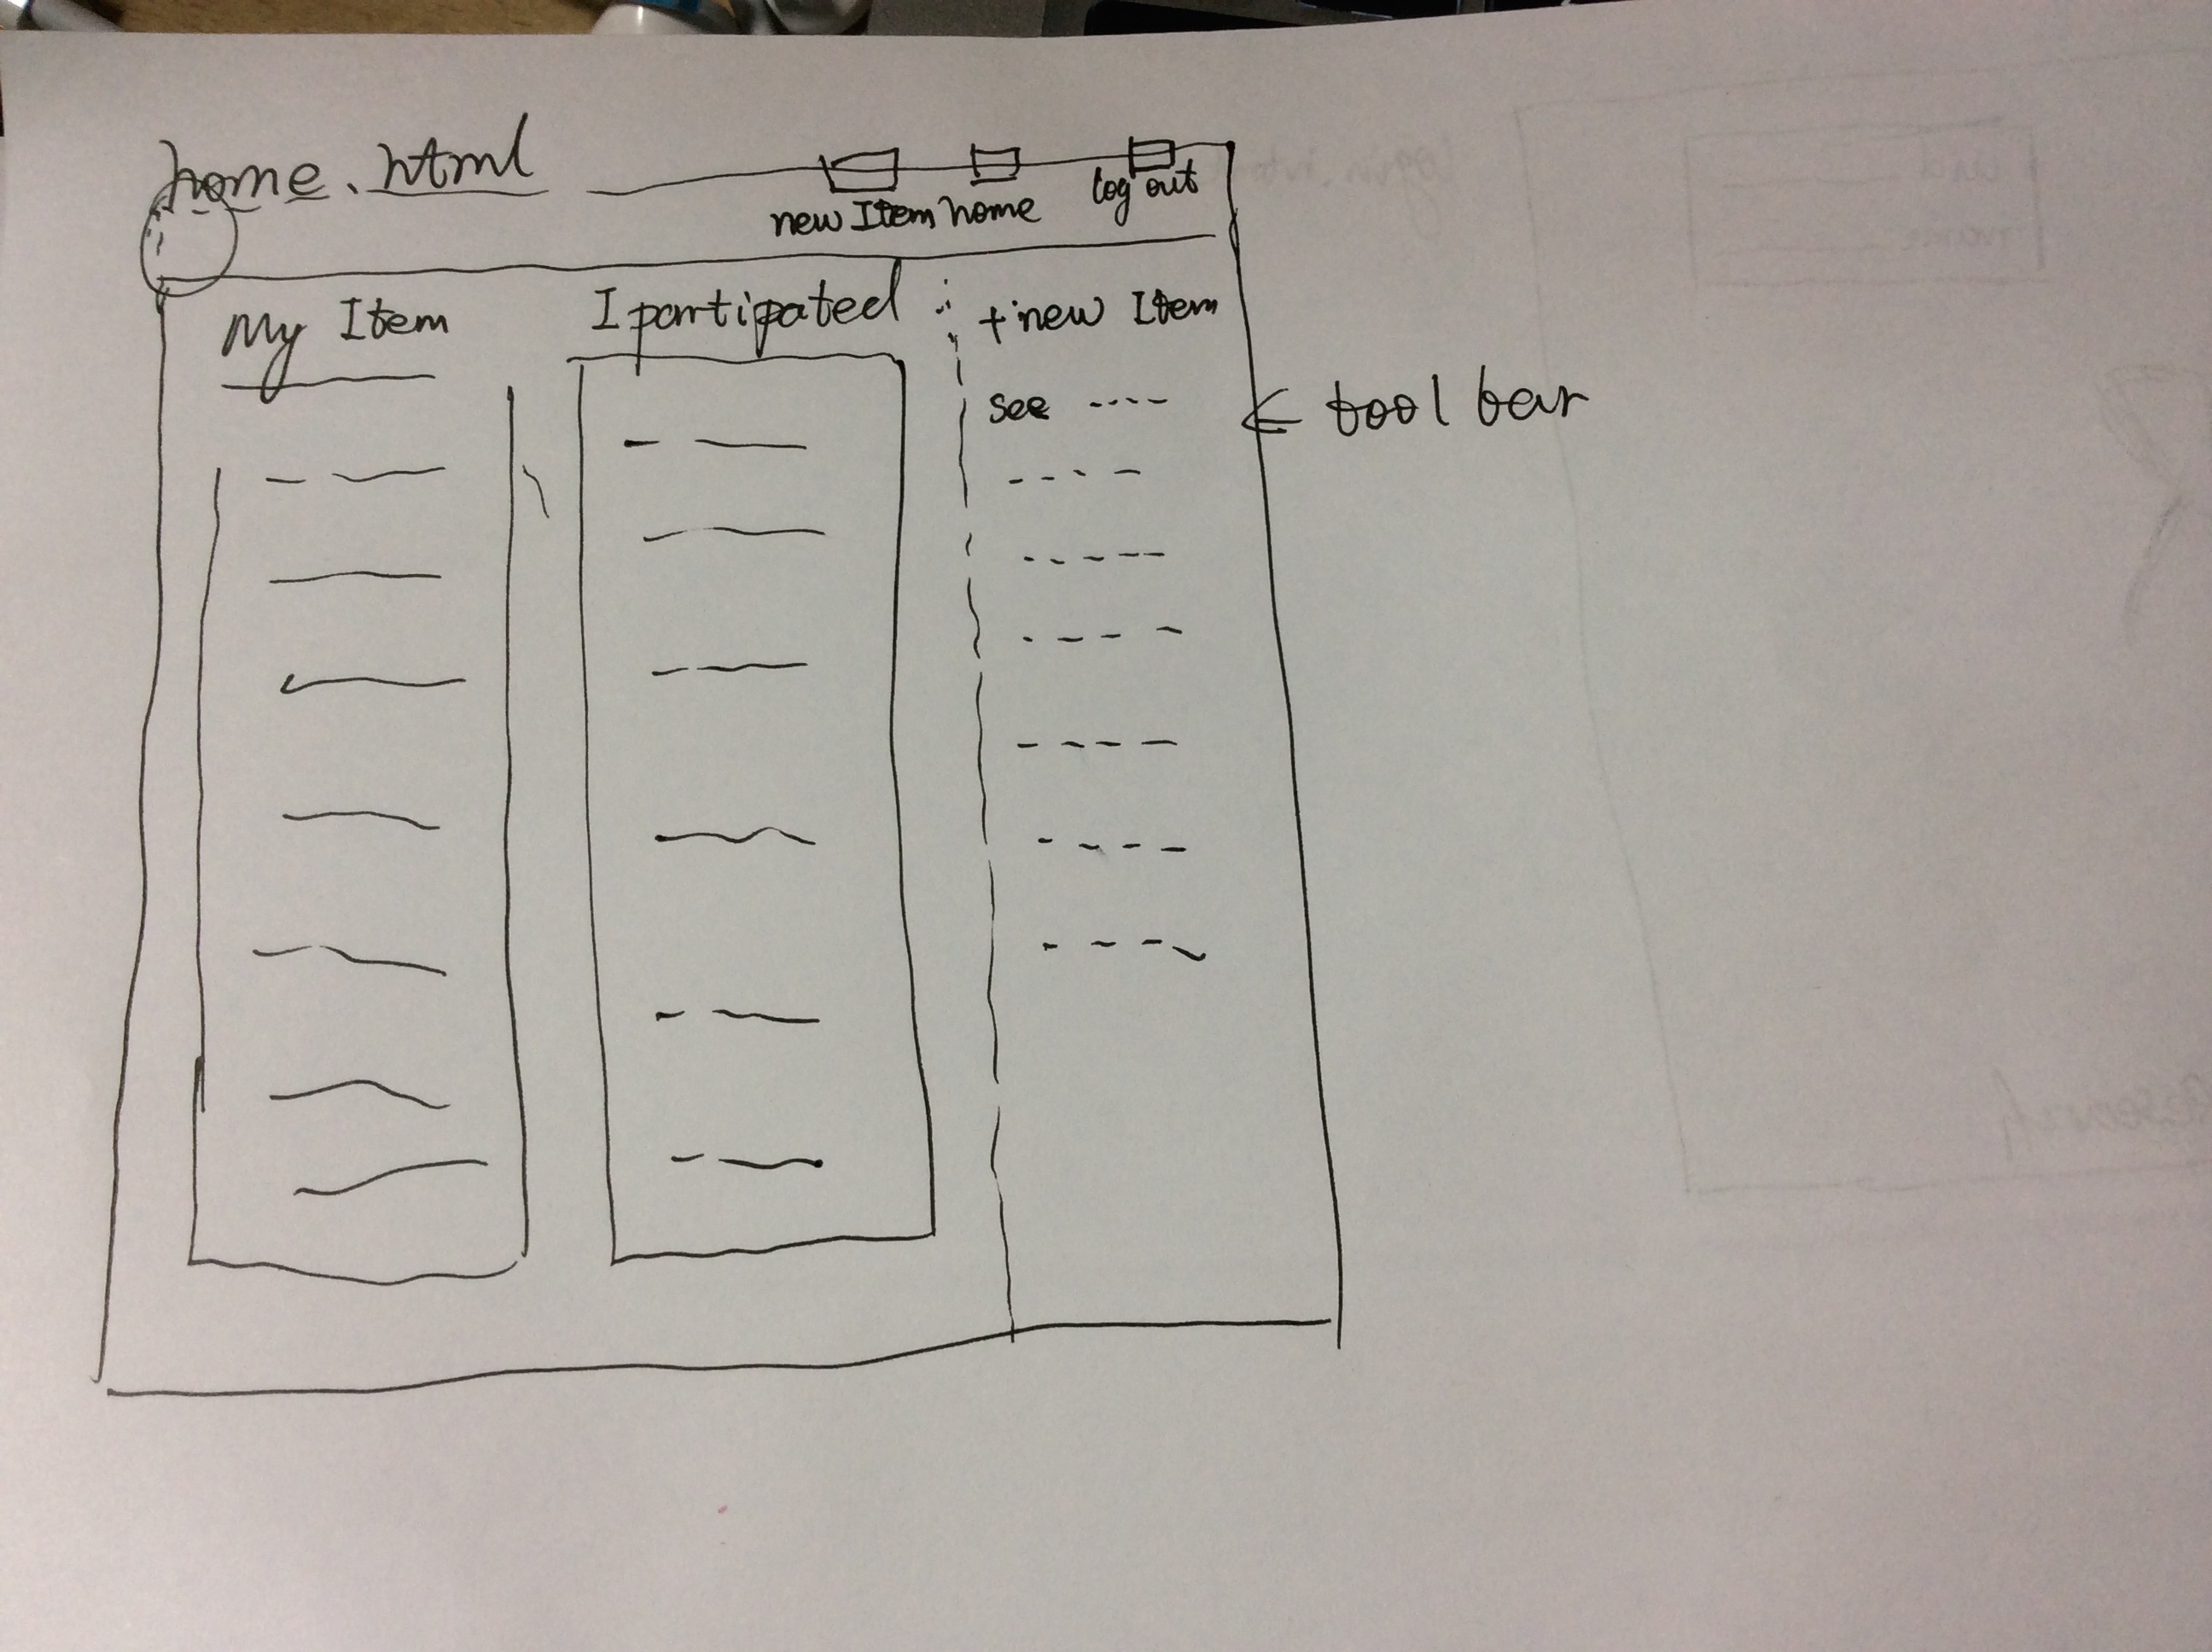 home.html
new Item home log out
My Item I partipated + new Item
see ----
tool bar